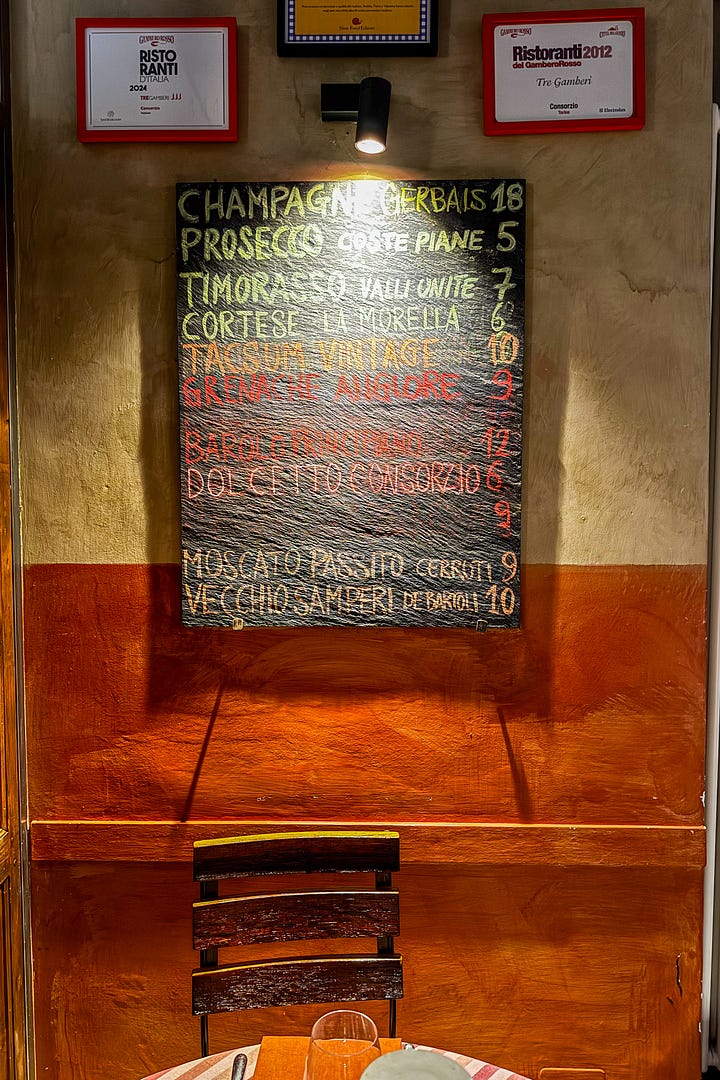 GAMBERO ROSSO
RISTO
RANTI
D'ITALIA
2024
TREGAMBERI
Consorzio
Torino
Slow Food Editore
GAMBERO ROSSO
CITTÀ DEL GUSTO
Ristoranti2012
del GamberoRosso
Tre Gamberi
Consorzio
Torino
Electrolux
CHAMPAGNE GERBAIS 18
PROSECCO COSTE PIANE 5
TIMORASSO VALLI UNITE 7
CORTESE LA MORELLA 6
TACSUM VINTAGE 10
GRENACHE ANGLORE 9
BAROLO PRINCIPIANO 12
DOLCETTO CONSORZIO 6
MOSCATO PASSITO CERRUTI 9
VECCHIO SAMPERI DE BARTOLI 10